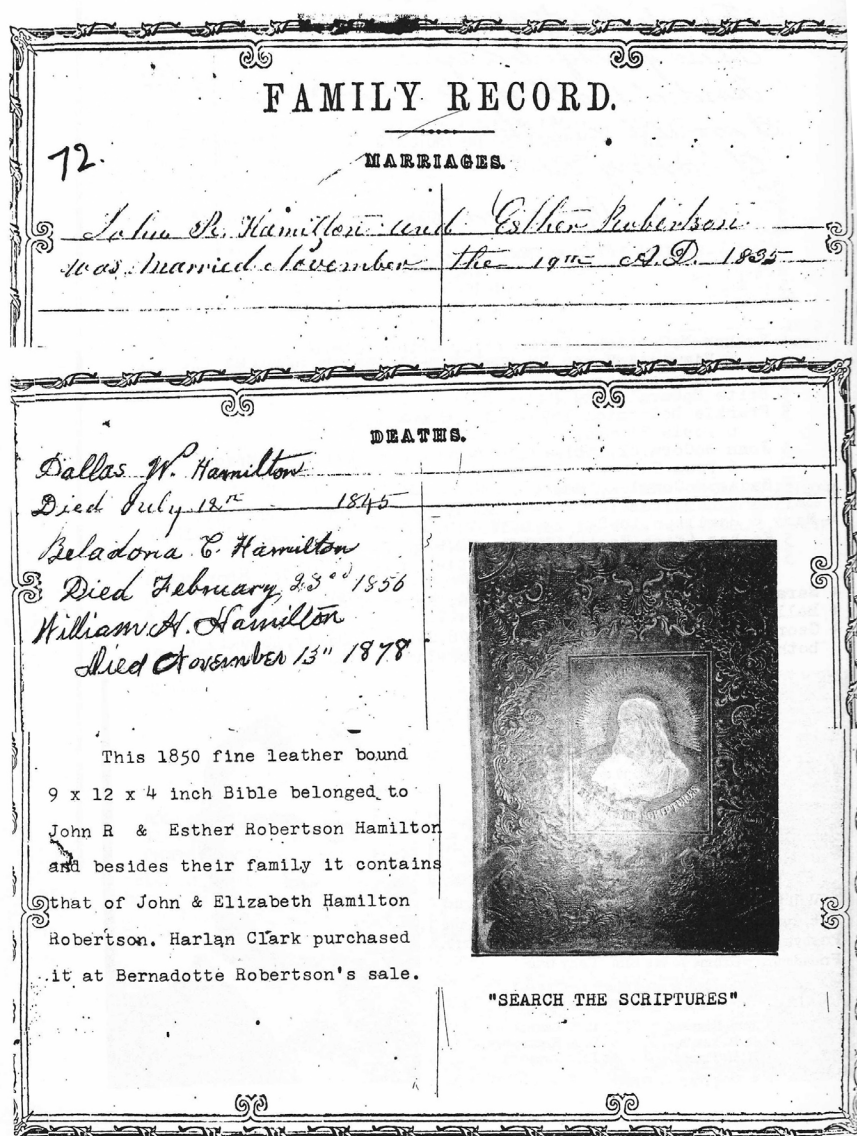 FAMILY RECORD.
72.
MARRIAGES.
John R. Hamilton and Esther Robertson
was married November the 19th A.D. 1835
DEATHS.
Dallas W. Hamilton
Died July 12th 1845
Beladona C. Hamilton
Died February 23rd 1856
William H. Hamilton
Died November 13" 1878
This 1850 fine leather bound
9 x 12 x 4 inch Bible belonged to
John R & Esther Robertson Hamilton
and besides their family it contains
that of John & Elizabeth Hamilton
Robertson. Harlan Clark purchased
it at Bernadotte Robertson's sale.
SEARCH THE SCRIPTURES
"SEARCH THE SCRIPTURES"